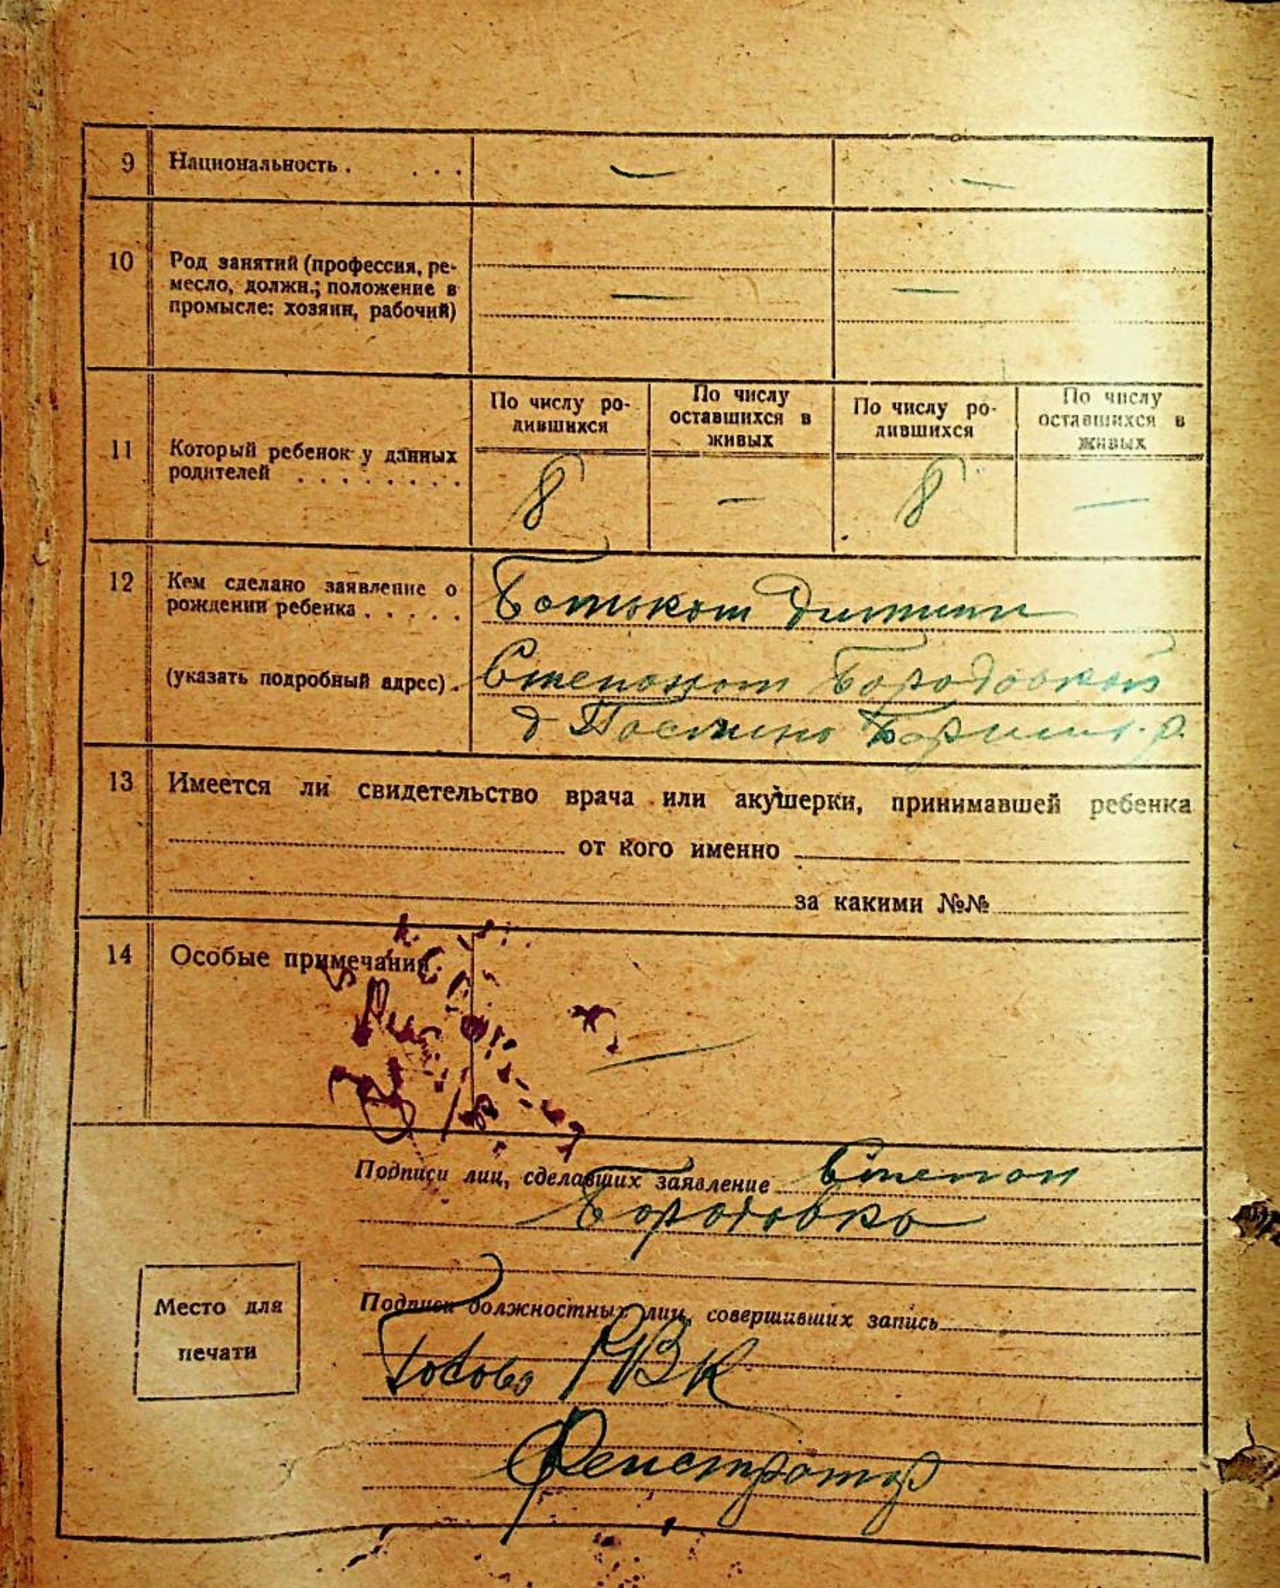 9 Национальность . . . . — —
10 Род занятий (профессия, ре-
месло, должн.; положение в — —
промысле: хозяин, рабочий)
11 Который ребенок у данных
родителей . . . . . . . .
По числу ро-
дившихся
По числу
оставшихся в
живых
По числу ро-
дившихся
По числу
оставшихся в
живых
8 — 8 —
12 Кем сделано заявление о
рождении ребенка . . . . .
(указать подробный адрес) .
Батьком дитини
Степаном Бородовкой
д
13 Имеется ли свидетельство врача или акушерки, принимавшей ребенка
от кого именно
за какими №№
14 Особые примечания.
Подписи лиц, сделавших заявление Степан
Бородовка
Подписи должностных лиц, совершивших запись
Голова РВК
Место для
печати